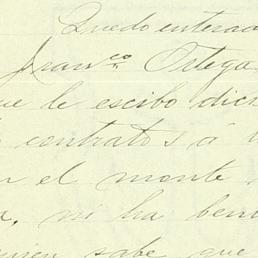 Quedo enterad
Fran.co Ortega
ue le escibo dic
contratos á
el monte
a, ni ha
quien sabe que